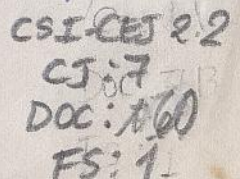 CSI-CEJ 2.2
CJ: 7
DOC: 160
FS: 1